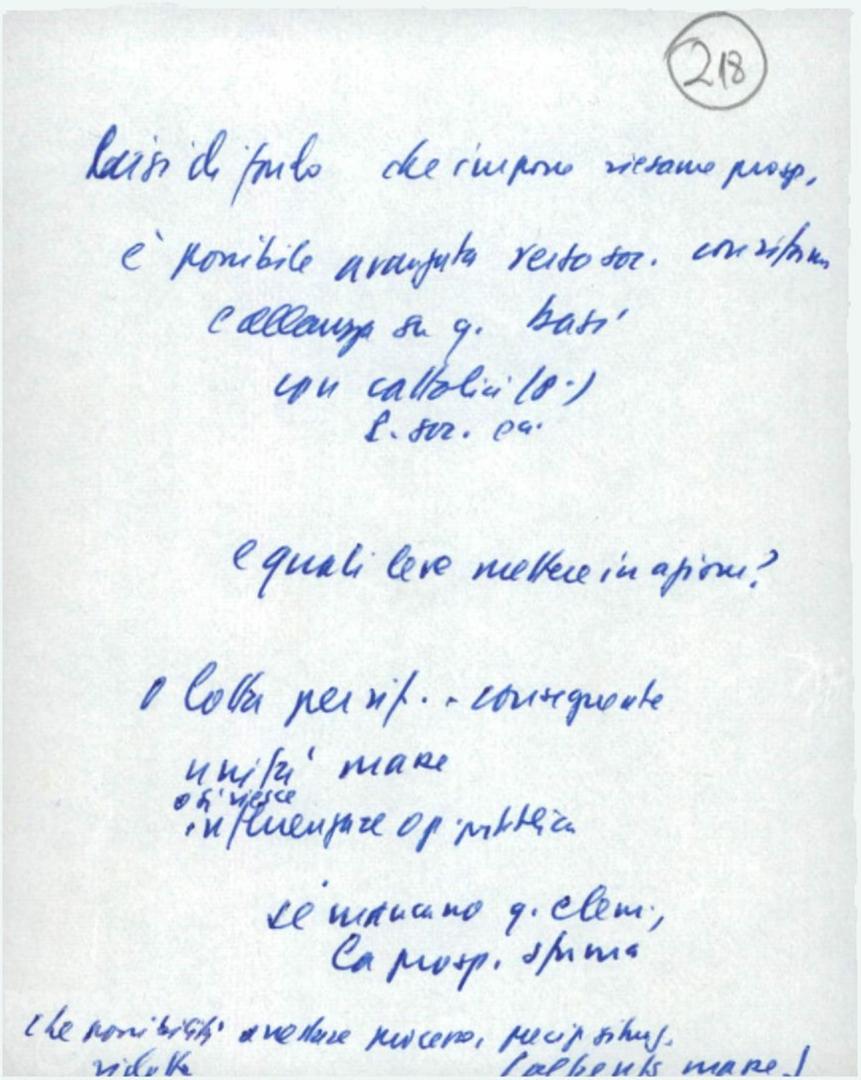 218
di fondo che impone riesame prosp.
è possibile avanzata verso soc. con riforme
e alleanza su q. basi
con cattolici (o.)
e quali leve mettere in azione?
lotta per rif. - conseguente
unità masse
o si riesce
influenzare op. pubblica
se mancano q. elem.,
la prosp. sfuma
che possibilità arrestare processo, precip. situaz.
ridotta masse)